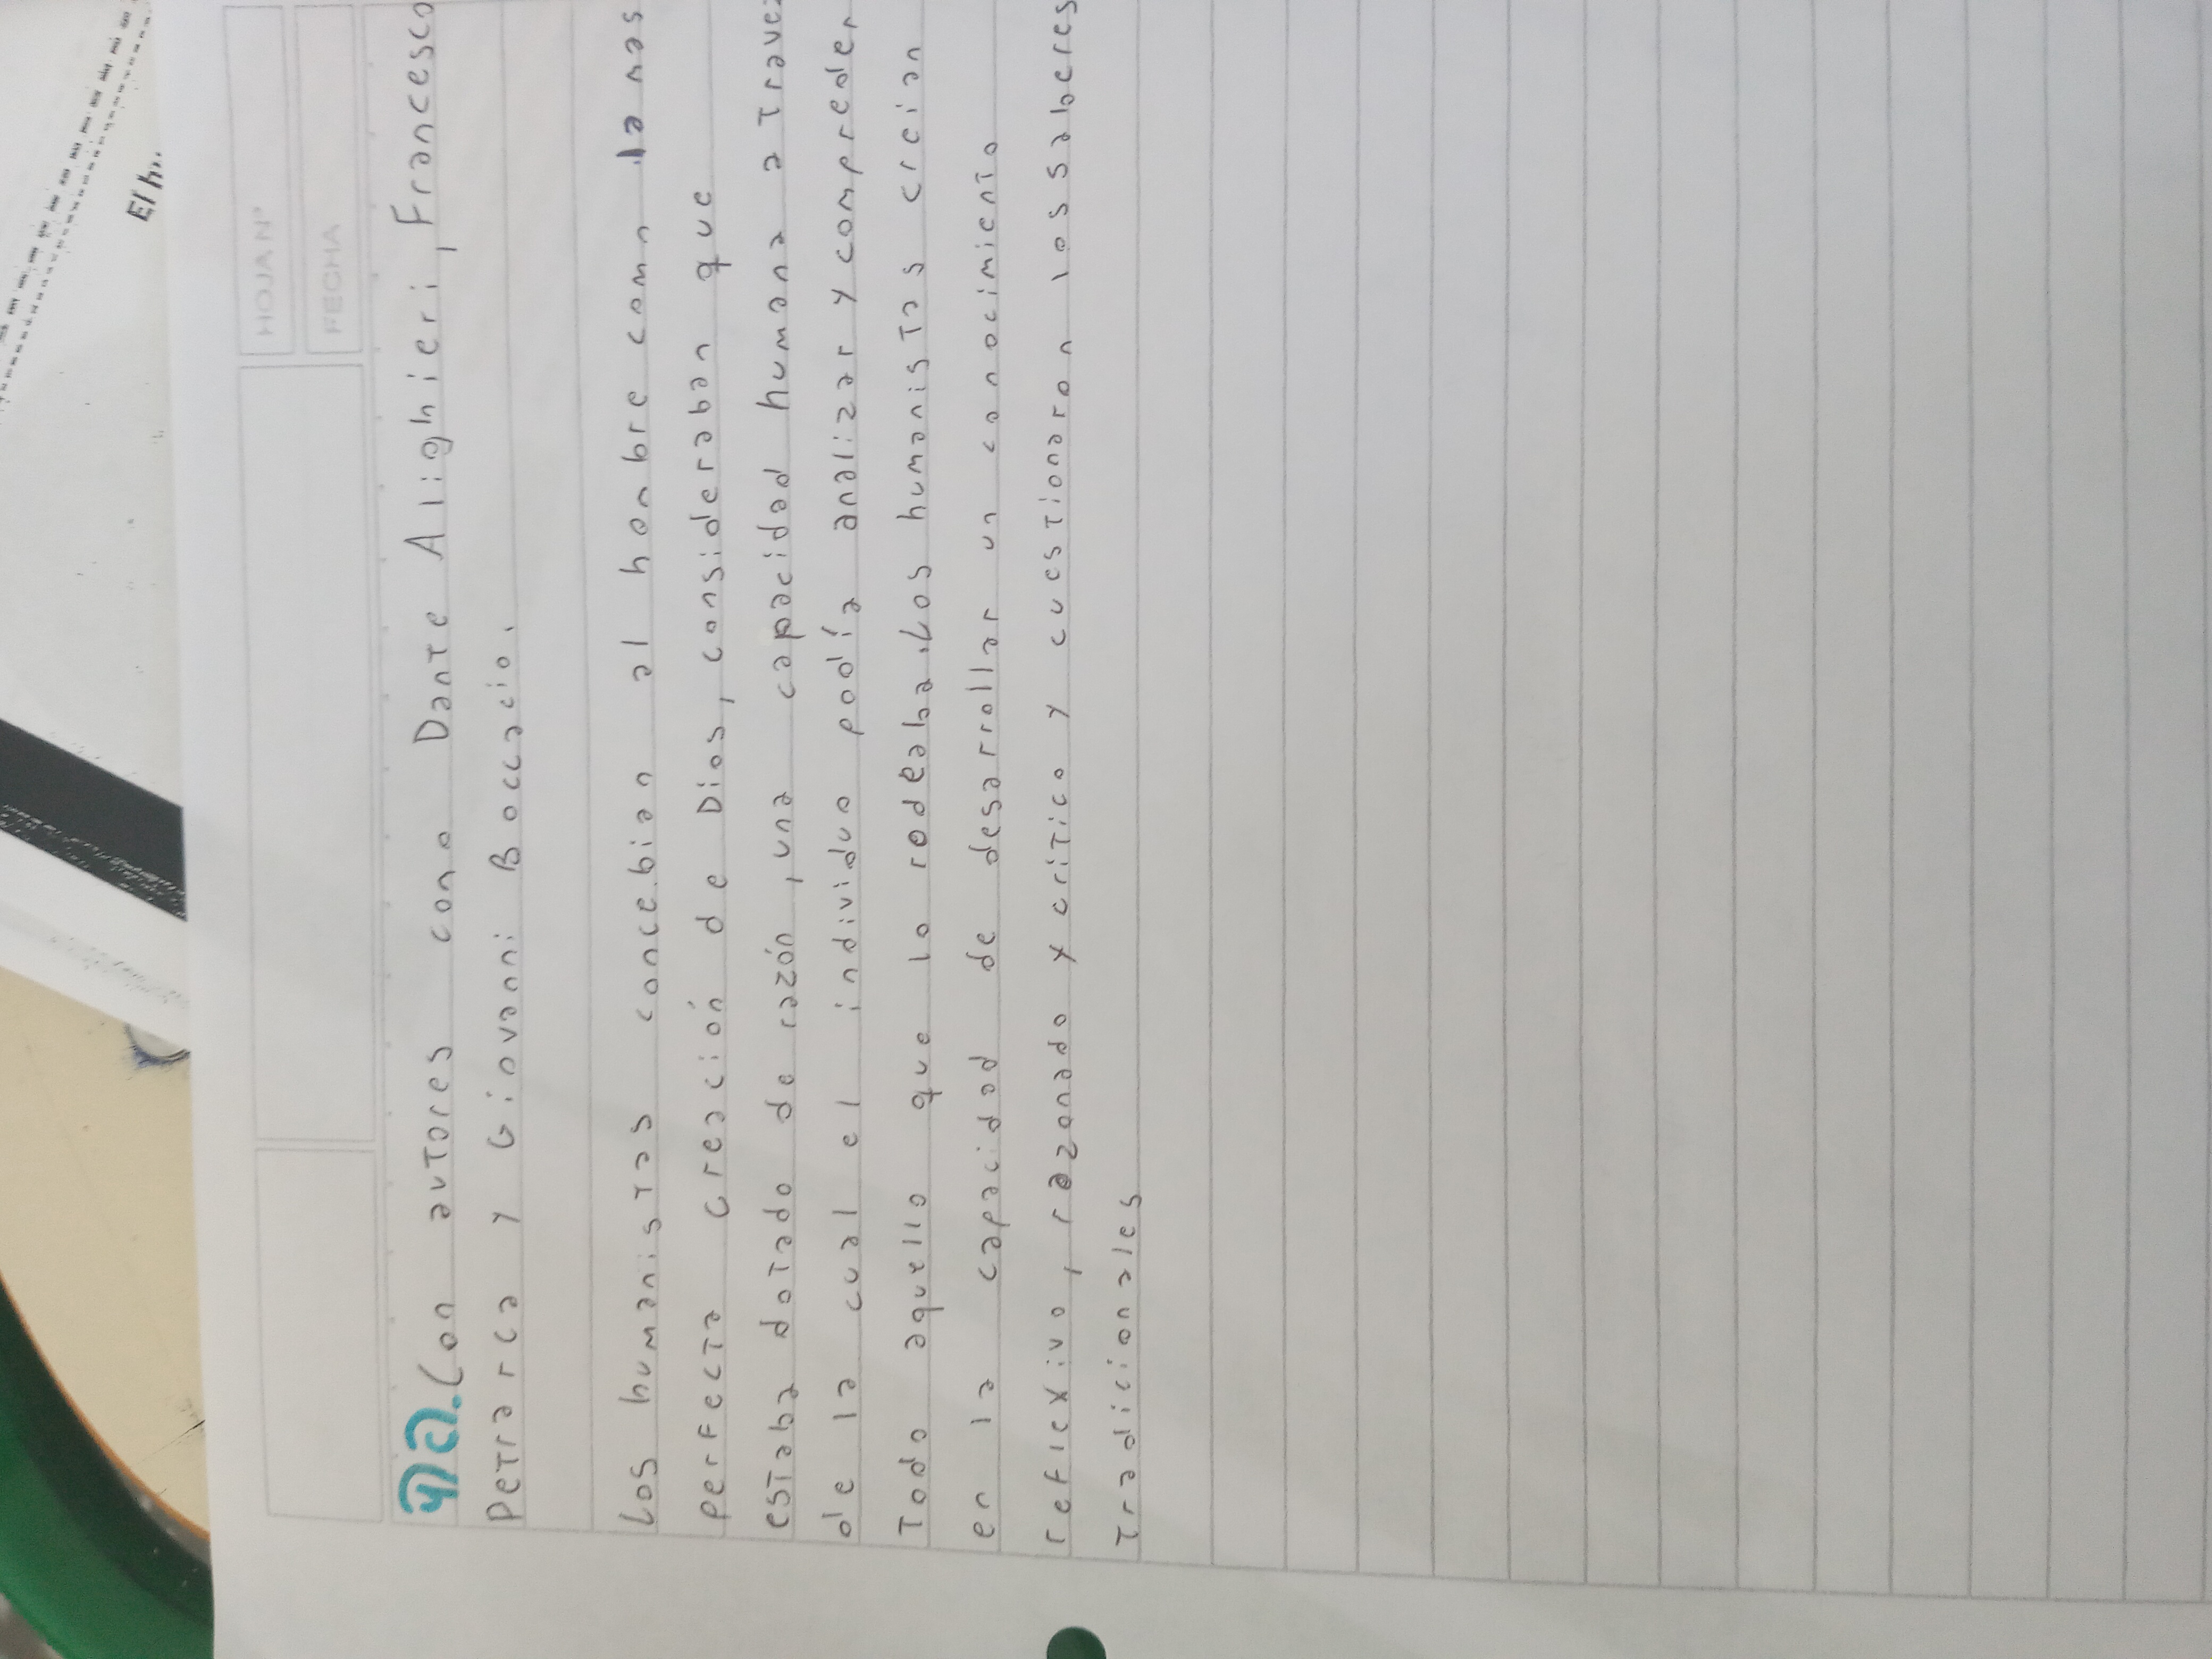 HOJA N°
FECHA
4) a. Con autores cono Dante Alighieri, Francesco
Petrarca y Giovanni Boccacio.
Los humanistas concebian al honbre comn la nas
perfecta creación de Dios, consideraban que
estaba dotado de razón, una capacidad humana a travez
de la cual el individuo podía analizar y comprender
Todo aquello que lo rodeaba. Los humanistas creian
en la capacidad de desarrollar un conocimiento
reflexivo, razonado y critico y cuestionaron los saberes
Tradicionales